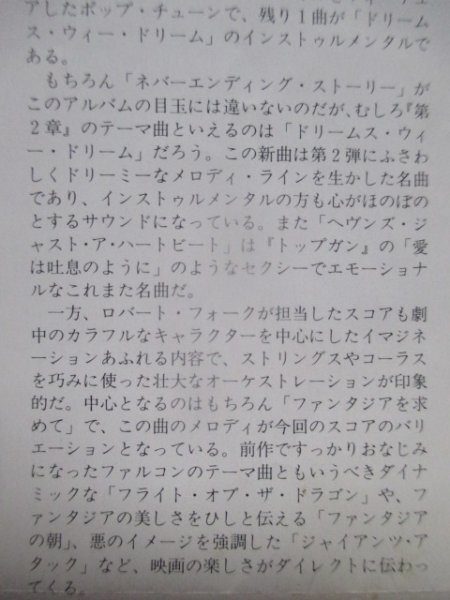 アしたポップ・チューンで、残り１曲が「ドリーム
ス・ウィー・ドリーム」のインストゥルメンタルで
ある。
もちろん「ネバーエンディング・ストーリー」が
このアルバムの目玉には違いないのだが、むしろ『第
２章』のテーマ曲といえるのは「ドリームス・ウィ
ー・ドリーム」だろう。この新曲は第２弾にふさわ
しくドリーミーなメロディ・ラインを生かした名曲
であり、インストゥルメンタルの方も心がほのぼの
とするサウンドになっている。また「ヘヴンズ・ジ
ャスト・ア・ハートビート」は『トップガン』の「愛
は吐息のように」のようなセクシーでエモーショナ
ルなこれまた名曲だ。
一方、ロバート・フォークが担当したスコアも劇
中のカラフルなキャラクターを中心にしたイマジネ
ーションあふれる内容で、ストリングスやコーラス
を巧みに使った壮大なオーケストレーションが印象
的だ。中心となるのはもちろん「ファンタジアを求
めて」で、この曲のメロディが今回のスコアのバリ
エーションとなっている。前作ですっかりおなじみ
になったファルコンのテーマ曲ともいうべきダイナ
ミックな「フライト・オブ・ザ・ドラゴン」や、フ
ァンタジアの美しさをひしと伝える「ファンタジア
の朝」、悪のイメージを強調した「ジャイアンツ・ア
タック」など、映画の楽しさがダイレクトに伝わっ
てくる。